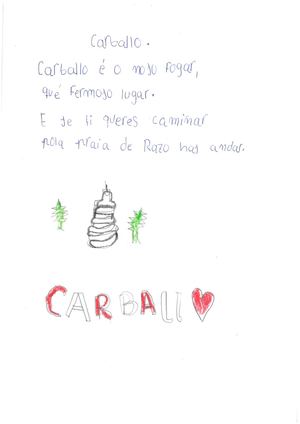 Carballo.
Carballo é o noso fogar,
qué fermoso lugar.
E se ti queres caminar
pola praia de Razo has andar.
CARBALL